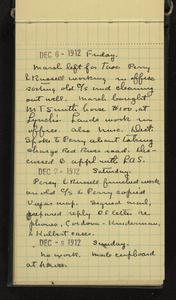 DEC 6 - 1912 Friday.
Marsh left for Taos. Perry
& Russell working in office
sorting old o/s and cleaning
out well. Marsh bought
M T Smith horse $100, at
Lynch's. Lande work in
office. Also Muse.
Spoke to Perry about taking
charge Red River road. Dis-
cussed & appl with P.A.S.
DEC 7 - 1912 Saturday.
Perry & Russell finished work
on old o/s & Perry copied
Vegas map. Signed mail,
prepared reply
phones, Cordova - Hinderman,
& Hulbert cases.
DEC - 8 1912 Sunday.
No work. Made cupboard
at house.